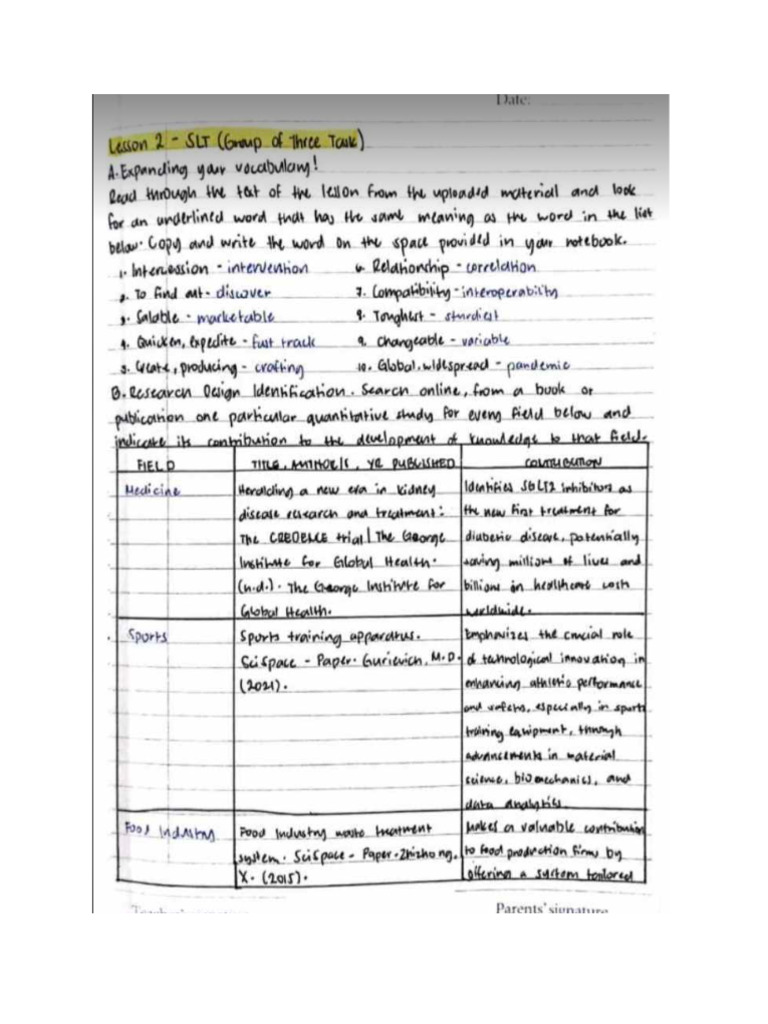 Date:
Lesson 2 - SLT (Group of Three Task)
A. Expanding your vocabulary!
Read through the text of the lesson from the uploaded material and look
for an underlined word that has the same meaning as the word in the list
below. Copy and write the word on the space provided in your notebook.
1. Intercession - intervention
2. To find out - discover
3. Salable - marketable
4. Quicken, Expedite - fast track
5. Create, producing - crafting
6. Relationship - correlation
7. Compatibility - interoperability
8. Toughest - sturdiest
9. Changeable - variable
10. Global, widespread - pandemic
B. Research Design Identification. Search online, from a book or
publication one particular quantitative study for every field below and
indicate its contribution to the development of knowledge to that field.
FIELD
TITLE, AUTHOR/S, YR PUBLISHED
CONTRIBUTION
Medicine
Heralding a new era in kidney
disease research and treatment:
The CREDENCE trial | The George
Institute for Global Health.
(n.d.). The George Institute for
Global Health.
Identifies SGLT2 inhibitors as
the new first treatment for
diabetic disease, potentially
saving millions of lives and
billions in healthcare costs
worldwide.
Sports
Sports training apparatus.
SciSpace - Paper. Gurievich, M.D.
(2021).
Emphasizes the crucial role
of technological innovation in
enhancing athletic performance
and safety, especially in sports
training equipment, through
advancements in material
science, biomechanics, and
data analytics.
Food Industry
Food Industry waste treatment
system. SciSpace - Paper. Zhizhong,
X. (2015).
Makes a valuable contribution
to food production firms by
offering a system tailored
Parents' signature